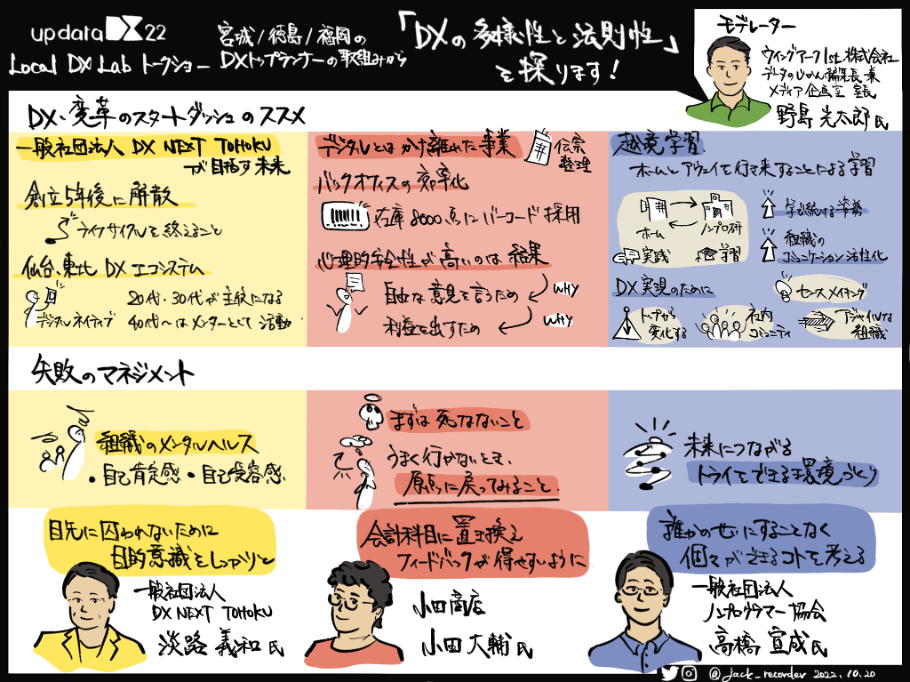 updataDX22
Local DX Lab トークショー
宮城/徳島/福岡の
DXトップランナーの取組みから
「DXの多様性と法則性」
を探ります!
モデレーター
ウイングアーク1st株式会社
データのじかん編集長 兼
メディア企画室 室長
野島 光太郎氏
DX、変革のスタートダッシュのススメ
一般社団法人 DX NEXT TOHOKU
が目指す未来
創立5年後に解散
ライフサイクルを終えること
仙台、東北 DXエコシステム
デジタルネイティブ
20代・30代が主役になる
40代〜はメンターとして活動
デジタルとはかけ離れた事業
伝票
整理
バックオフィスの効率化
在庫8000点にバーコード採用
心理的安全性が高いのは結果
自由な意見を言うため
WHY
利益を出すため
WHY
越境学習
ホームとアウェイを行き来することによる学習
ホーム
ノンプロ研
実践
学習
学び続ける姿勢
組織の
コミュニケーション活性化
DX実現のために
センスメイキング
トップから
変化する
社内
コミュニティ
アジャイルな
組織
失敗のマネジメント
組織のメンタルヘルス
・自己肯定感 ・自己受容感
まずは死なないこと
うまく行かないとき、
原点に戻ってみること.
未来につながる
トライをできる環境づくり
目先に囚われないために
目的意識をしっかりと
一般社団法人
DX NEXT TOHOKU
淡路 義和氏
会計科目に置き換え
フィードバックが得やすいように
小田商店
小田 大輔氏
誰かのせいにすることなく
個々ができるコトを考える
一般社団法人
ノンプログラマー協会
高橋 宣成氏
@jack_recorder 2022.10.20